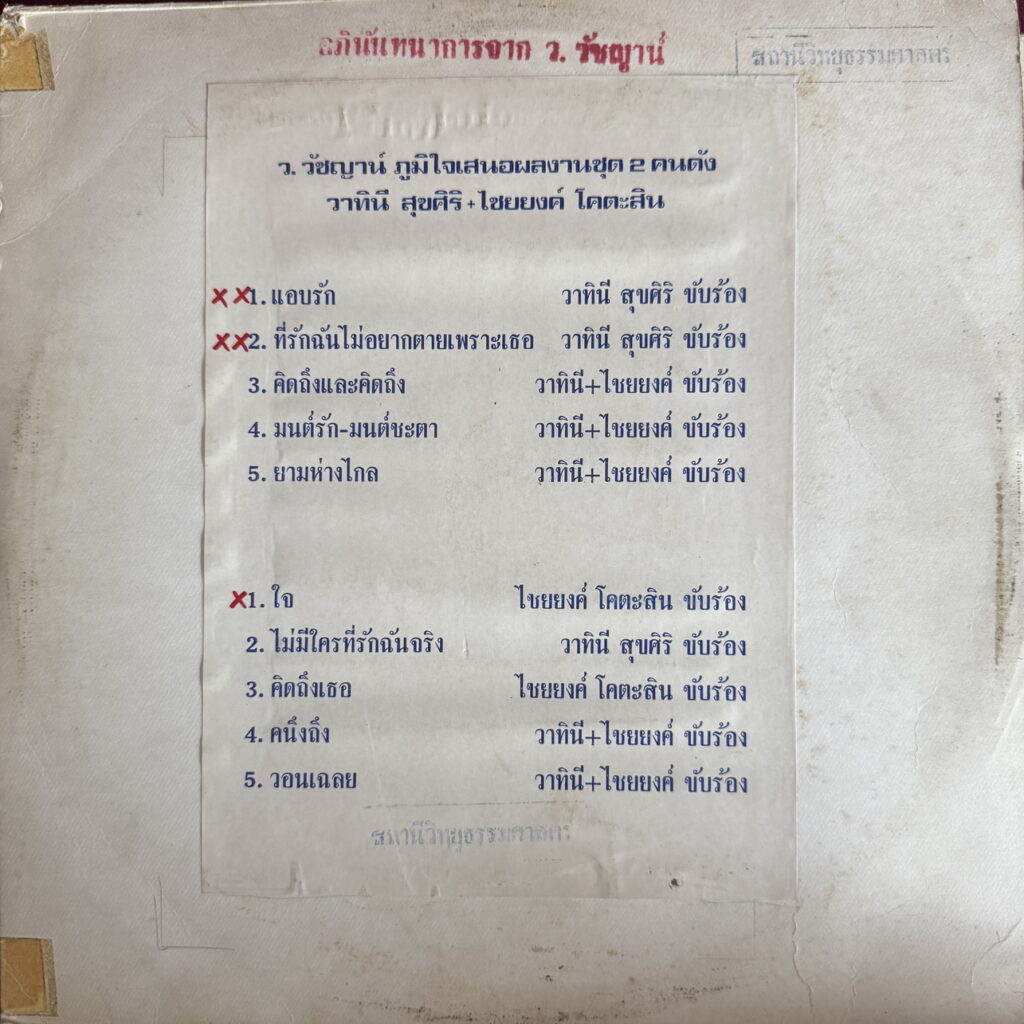 อภินันทนาการจาก ว. วัชญาน์
สถานีวิทยุธรรมศาสตร์
ว. วัชญาน์ ภูมิใจเสนอผลงานชุด 2 คนดัง
วาทินี สุขศิริ + ไชยยงค์ โคตะสิน
××1. แอบรัก วาทินี สุขศิริ ขับร้อง
××2. ที่รักฉันไม่อยากตายเพราะเธอ วาทินี สุขศิริ ขับร้อง
3. คิดถึงและคิดถึง วาทินี+ไชยยงค์ ขับร้อง
4. มนต์รัก-มนต์ชะตา วาทินี+ไชยยงค์ ขับร้อง
5. ยามห่างไกล วาทินี+ไชยยงค์ ขับร้อง
×1. ใจ ไชยยงค์ โคตะสิน ขับร้อง
2. ไม่มีใครที่รักฉันจริง วาทินี สุขศิริ ขับร้อง
3. คิดถึงเธอ ไชยยงค์ โคตะสิน ขับร้อง
4. คนึงถึง วาทินี+ไชยยงค์ ขับร้อง
5. วอนเฉลย วาทินี+ไชยยงค์ ขับร้อง
สถานีวิทยุธรรมศาสตร์